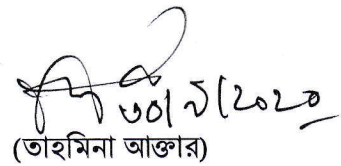 ৩০/৯/২০২০
(তাহমিনা আক্তার)